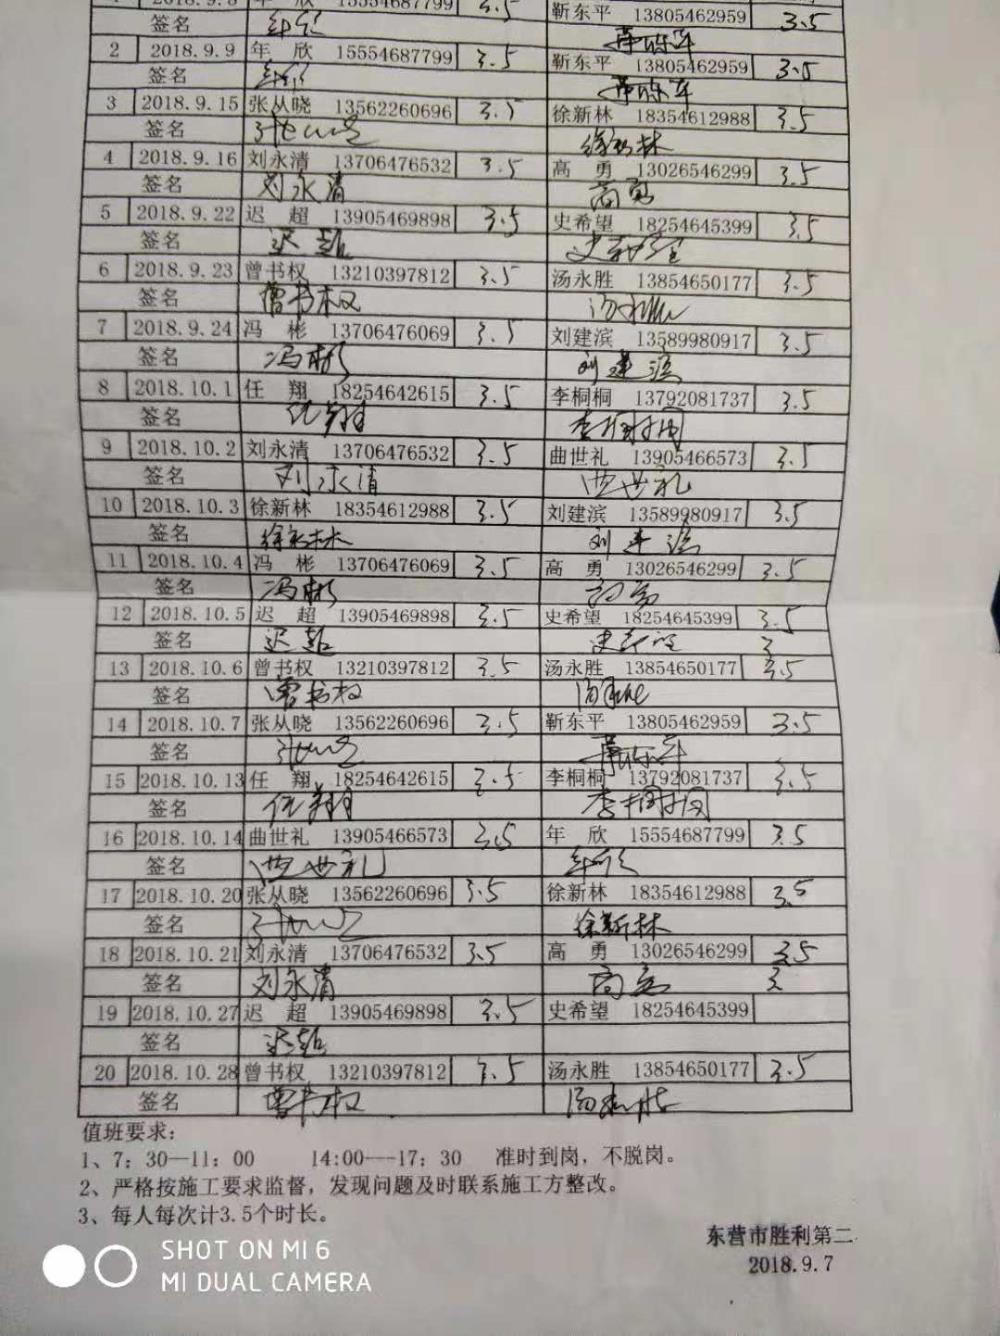 1 2018.9.8 年 欣 15554687799 3.5 靳东平 13805462959 3.5
签名 年欣
2 2018.9.9 年 欣 15554687799 3.5 靳东平 13805462959 3.5
签名 年欣
3 2018.9.15 张从晓 13562260696 3.5 徐新林 18354612988 3.5
签名 徐新林
4 2018.9.16 刘永清 13706476532 3.5 高 勇 13026546299 3.5
签名 刘永清 高勇
5 2018.9.22 迟 超 13905469898 3.5 史希望 18254645399 3.5
签名 迟超 史希望
6 2018.9.23 曾书权 13210397812 3.5 汤永胜 13854650177 3.5
签名 曾书权 汤永胜
7 2018.9.24 冯 彬 13706476069 3.5 刘建滨 13589980917 3.5
签名 冯彬 刘建滨
8 2018.10.1 任 翔 18254642615 3.5 李桐桐 13792081737 3.5
签名 任翔 李桐桐
9 2018.10.2 刘永清 13706476532 3.5 曲世礼 13905466573 3.5
签名 刘永清 曲世礼
10 2018.10.3 徐新林 18354612988 3.5 刘建滨 13589980917 3.5
签名 徐新林 刘建滨
11 2018.10.4 冯 彬 13706476069 3.5 高 勇 13026546299 3.5
签名 冯彬 高勇
12 2018.10.5 迟 超 13905469898 3.5 史希望 18254645399 3.5
签名 迟超 史希望 3
13 2018.10.6 曾书权 13210397812 3.5 汤永胜 13854650177 3.5
签名 曾书权 汤永胜
14 2018.10.7 张从晓 13562260696 3.5 靳东平 13805462959 3.5
签名
15 2018.10.13 任 翔 18254642615 3.5 李桐桐 13792081737 3.5
签名 任翔 李桐桐
16 2018.10.14 曲世礼 13905466573 3.5 年 欣 15554687799 3.5
签名 曲世礼 年欣
17 2018.10.20 张从晓 13562260696 3.5 徐新林 18354612988 3.5
签名 徐新林
18 2018.10.21 刘永清 13706476532 3.5 高 勇 13026546299 3.5
签名 刘永清 高勇 3
19 2018.10.27 迟 超 13905469898 3.5 史希望 18254645399
签名 迟超
20 2018.10.28 曾书权 13210397812 3.5 汤永胜 13854650177 3.5
签名 曾书权 汤永胜
值班要求：
1、7：30—11：00 14:00---17：30 准时到岗，不脱岗。
2、严格按施工要求监督，发现问题及时联系施工方整改。
3、每人每次计3.5个时长。
东营市胜利第二
2018.9.7
SHOT ON MI 6
MI DUAL CAMERA